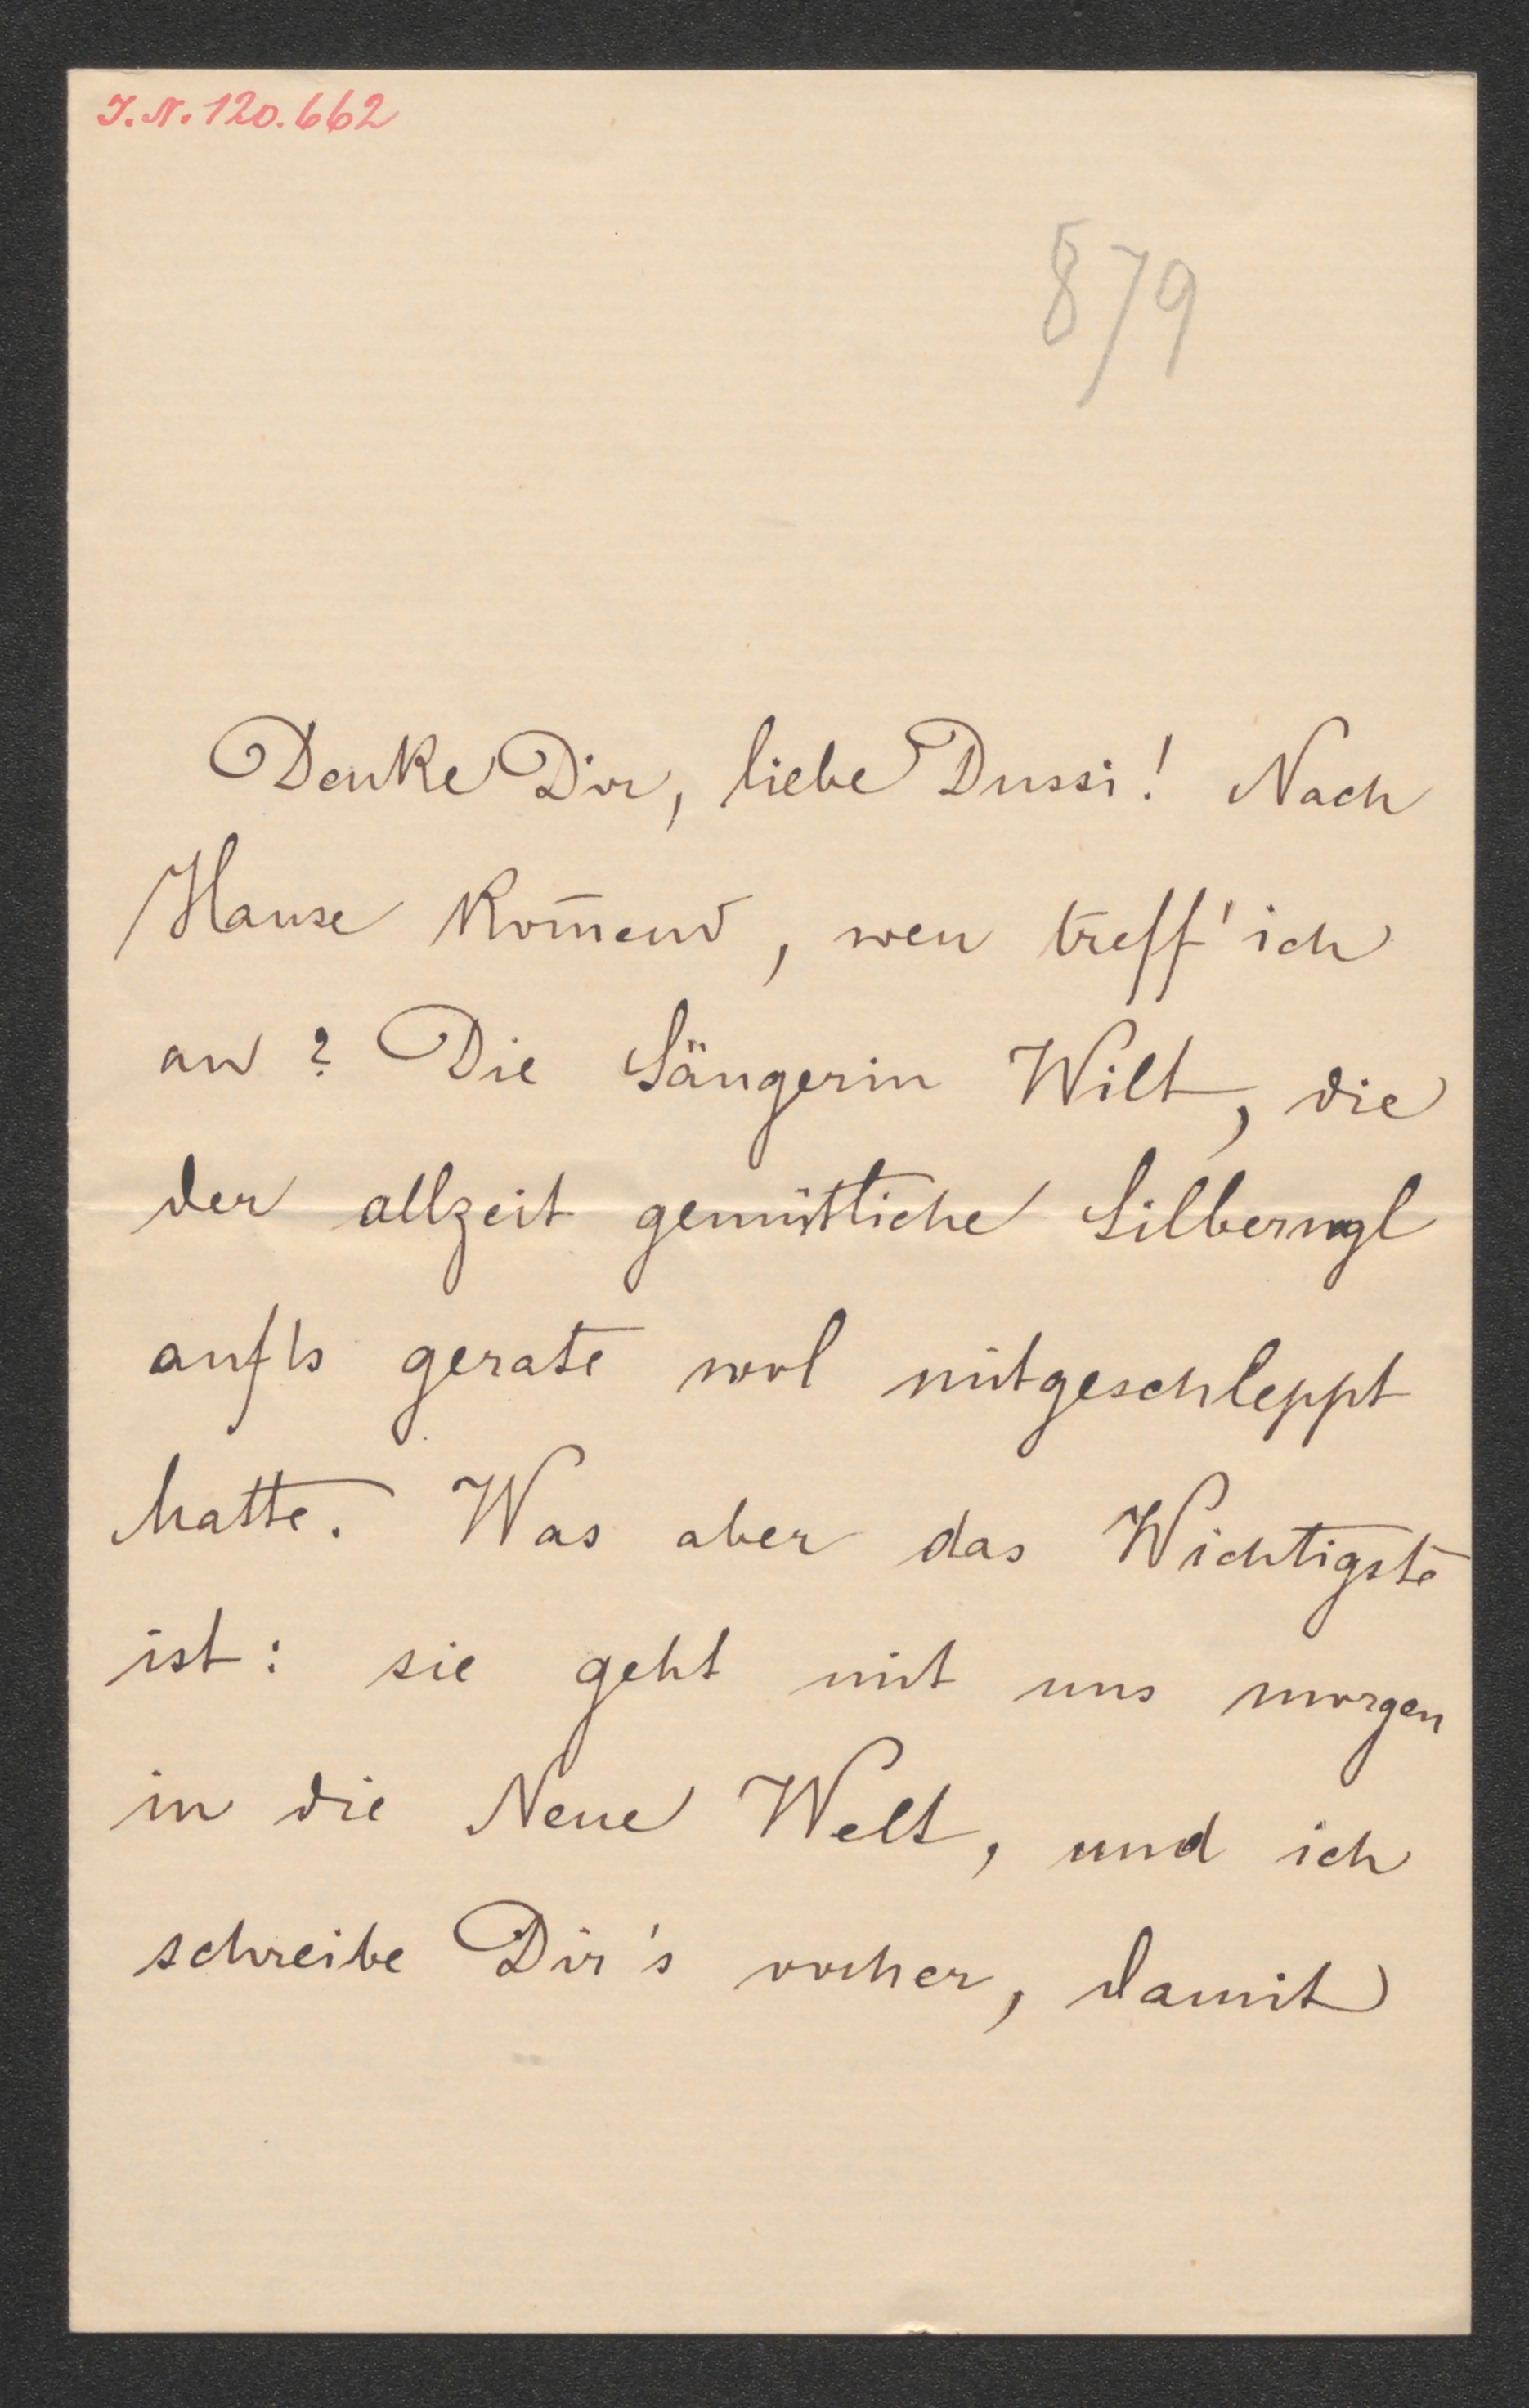 I.N. 120.662
879
Denke Dir, liebe Dussi! Nach
Hause kom̄end, wen treff' ich
an? Die Sängerin Wilt, die
der allzeit gemütliche Silbernagl
auf's gerate wol mitgeschleppt
hatte. Was aber das Wichtigste
ist: sie geht mit uns morgen
in die Neue Welt, und ich
schreibe Dir's vorher, damit